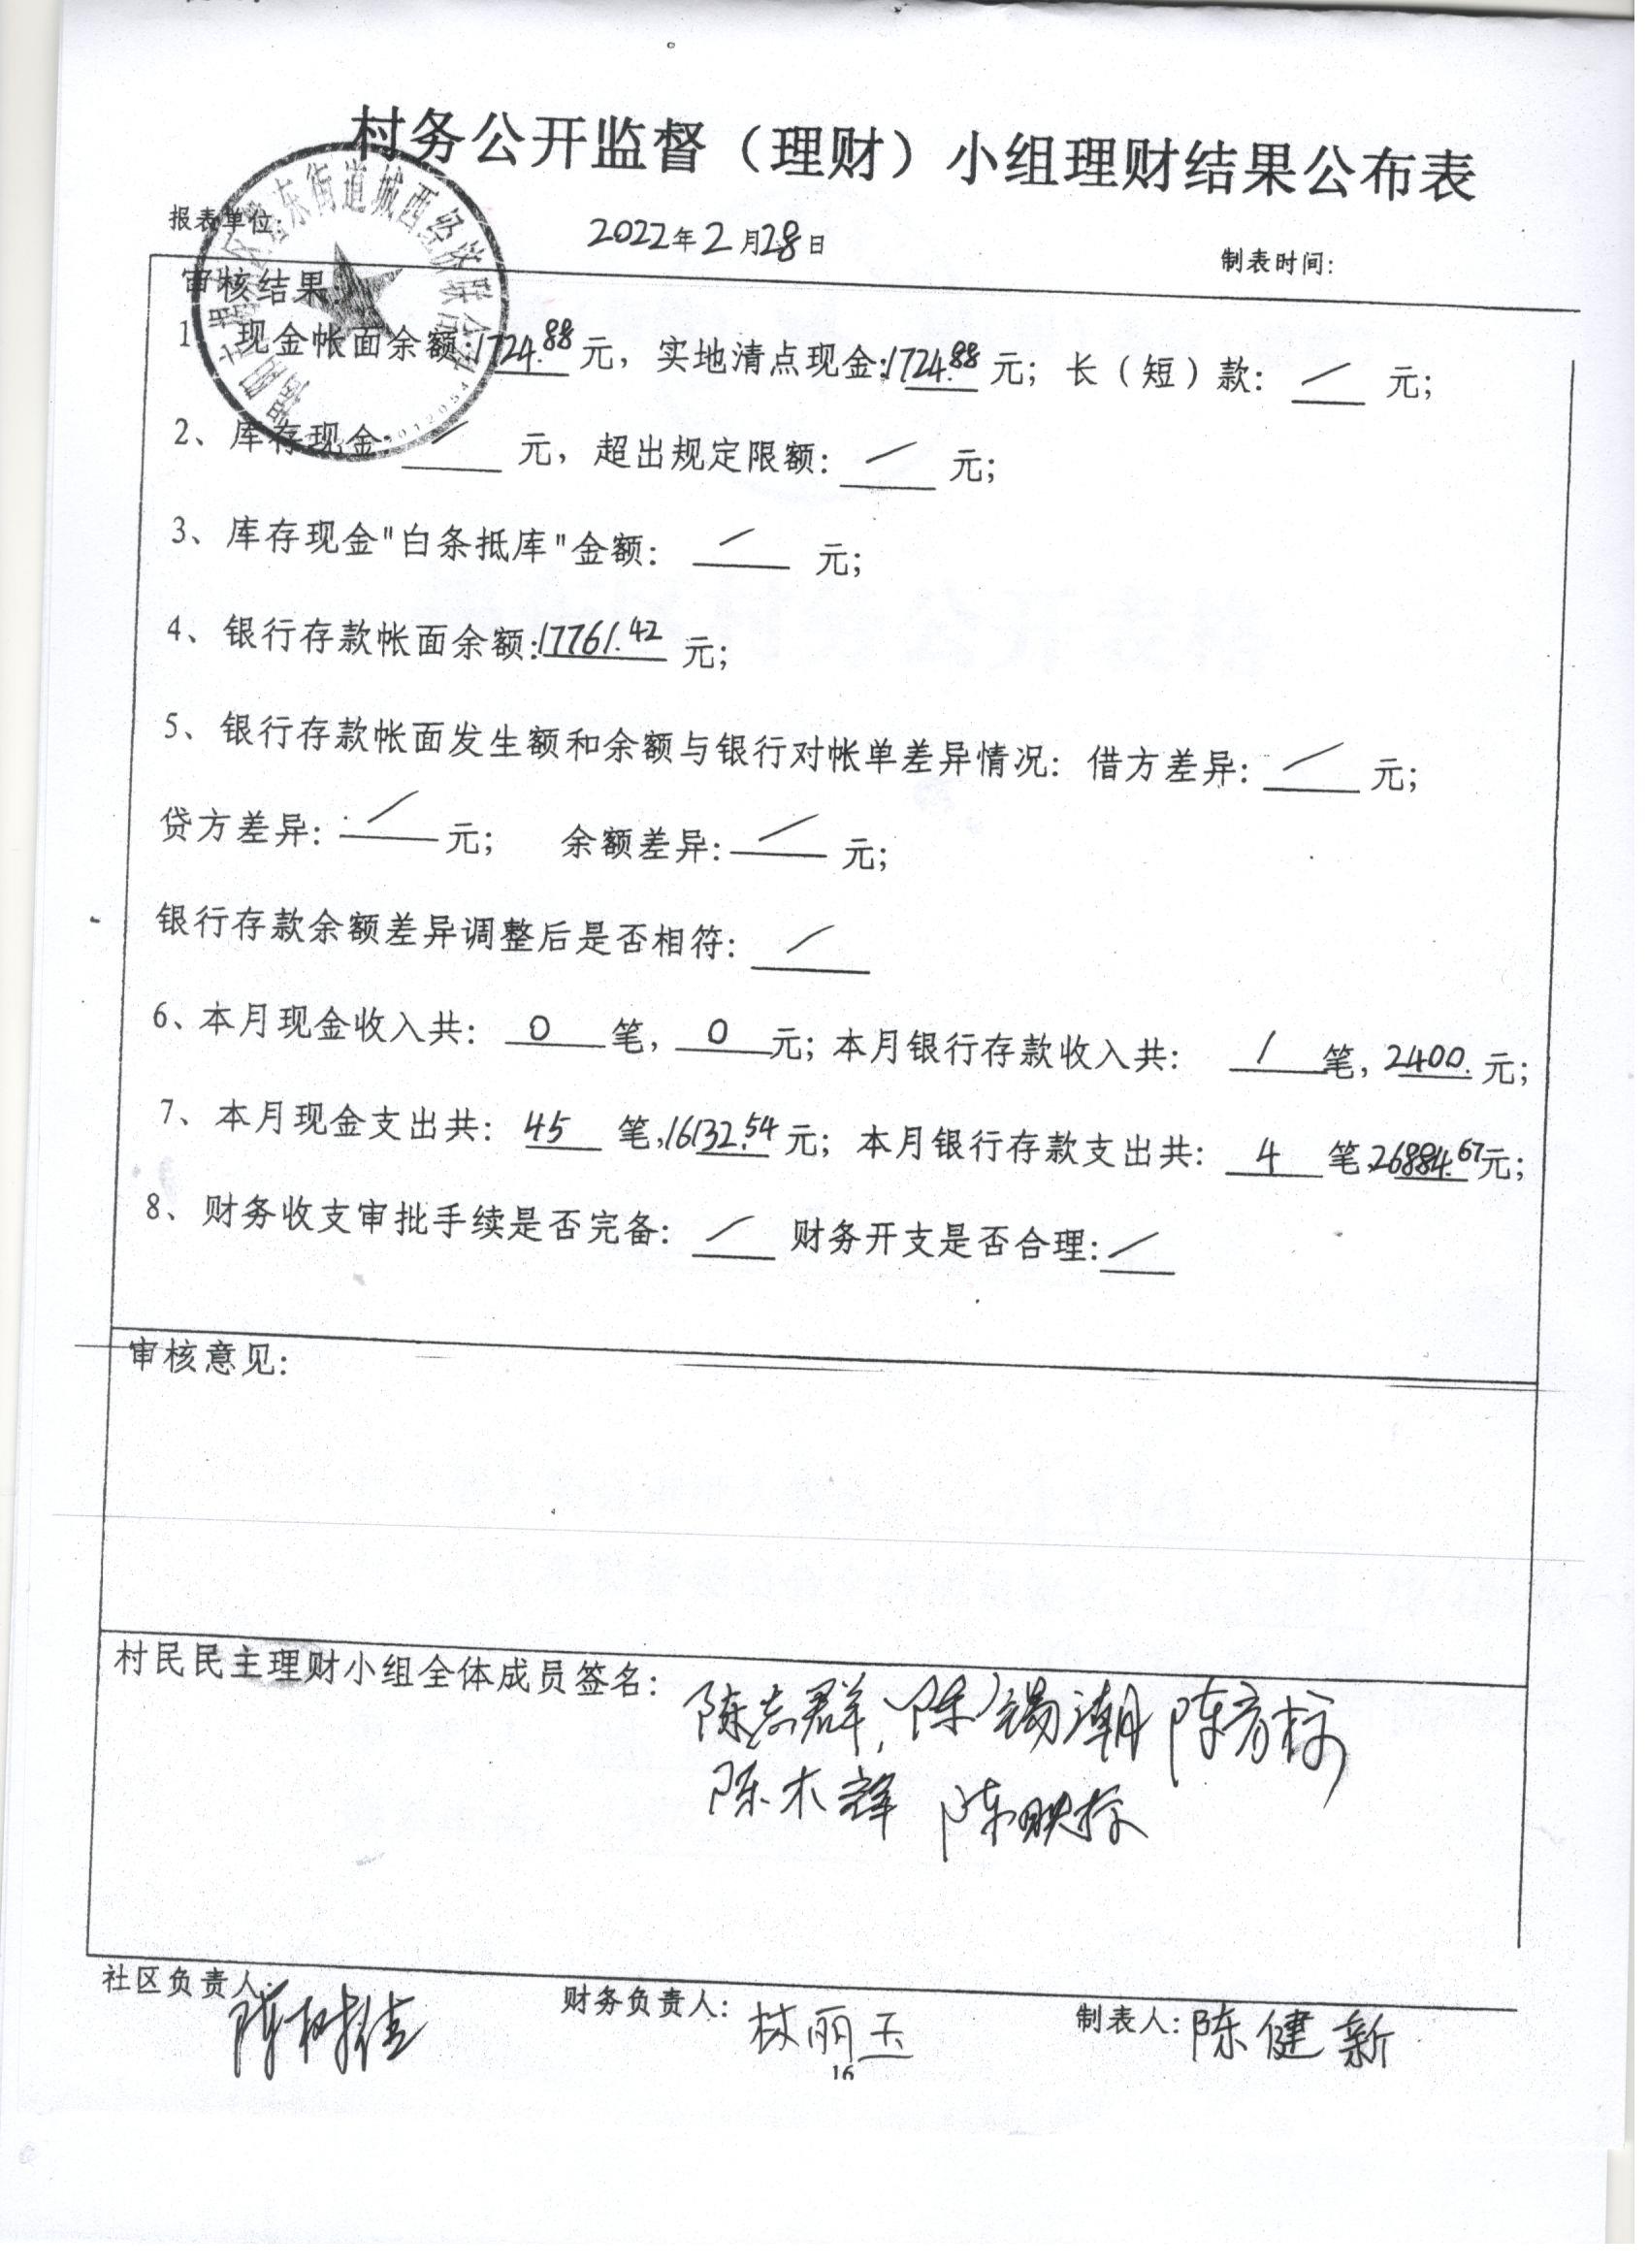 村务公开监督（理财）小组理财结果公布表
报表单位:
2022年2月28日
制表时间:
东街道城西经济联合
审核结果:
1、现金帐面余额:1724.88元，实地清点现金:1724.88元；长（短）款: / 元；
2、库存现金 / 元，超出规定限额: / 元；
3、库存现金"白条抵库"金额: / 元；
4、银行存款帐面余额:17761.42元；
5、银行存款帐面发生额和余额与银行对帐单差异情况: 借方差异: / 元；
贷方差异: / 元； 余额差异: / 元；
银行存款余额差异调整后是否相符: /
6、本月现金收入共: 0 笔, 0 元；本月银行存款收入共: 1 笔, 2400. 元；
7、本月现金支出共: 45 笔,16132.54元；本月银行存款支出共: 4 笔,26884.67元；
8、财务收支审批手续是否完备: / 财务开支是否合理: /
审核意见:
村民民主理财小组全体成员签名:
陈志群, 陈锡潮 陈
陈木辉 陈映标
社区负责人: 陈树佳
财务负责人: 林丽玉
制表人: 陈健新
16